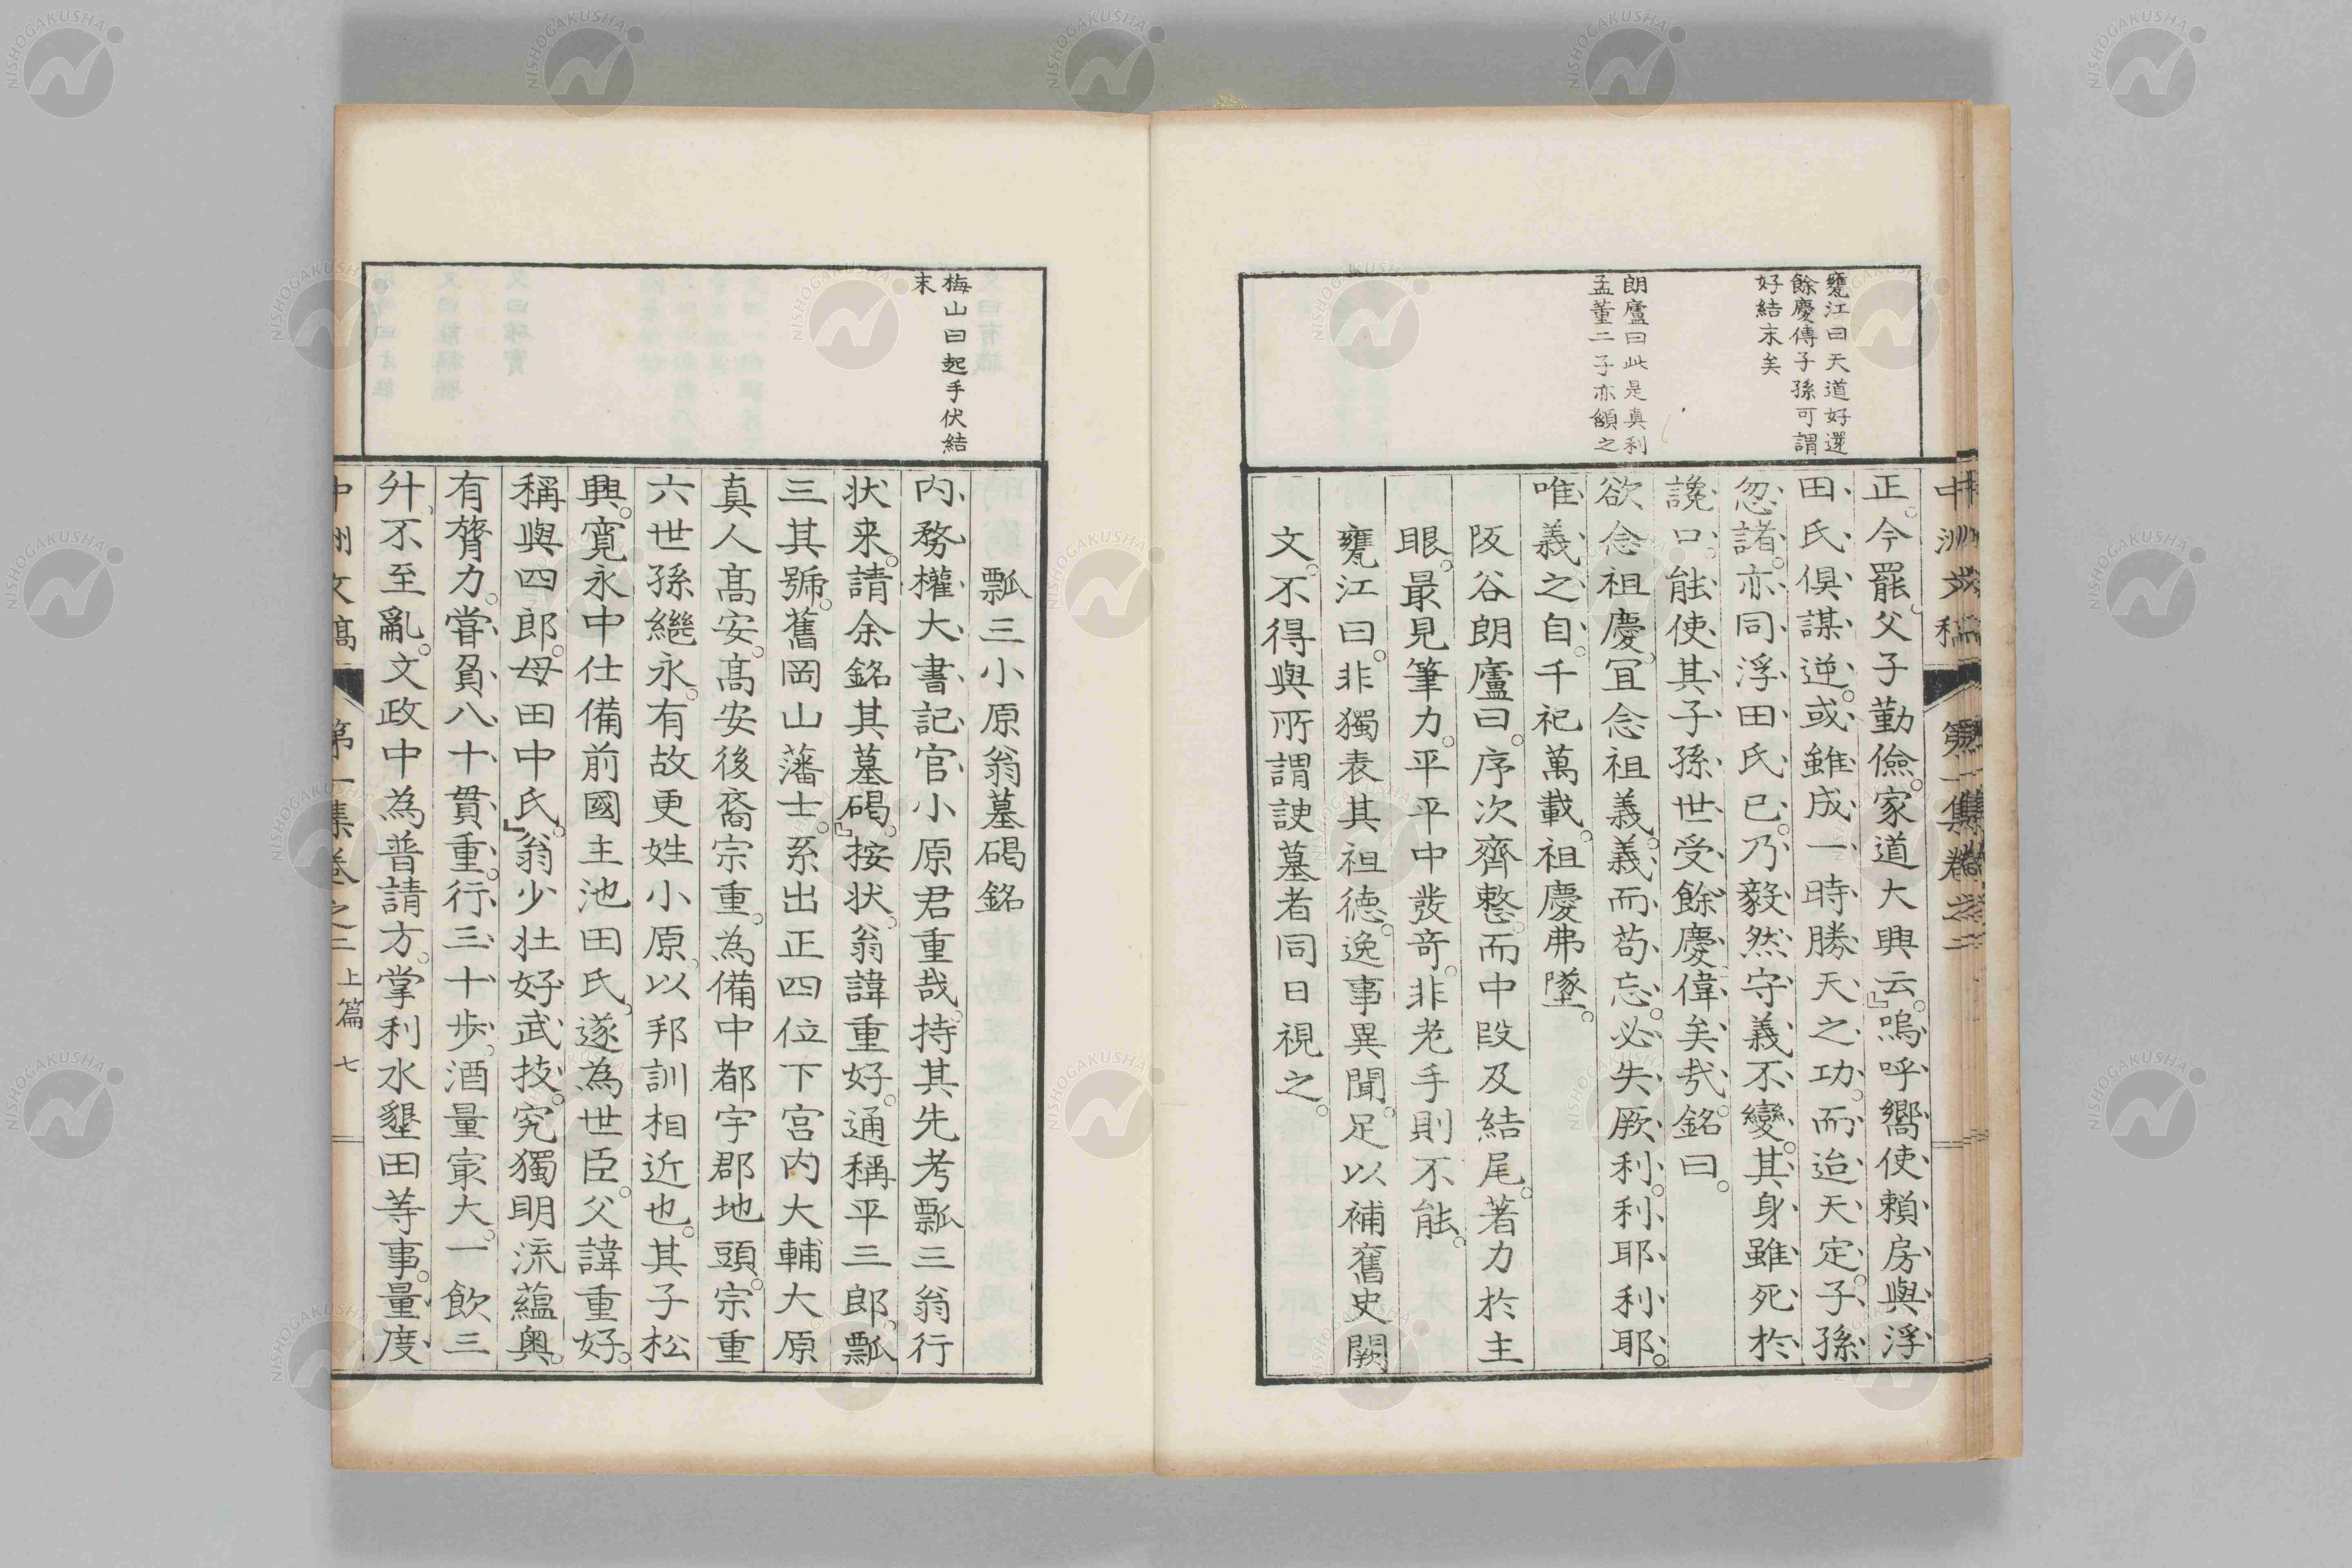 甕江曰天道好還
餘慶傳子孫可謂
好結末矣
朗廬曰此是真利
孟董二子亦頷之
正。今罷父子勤儉。家道大興云。』嗚呼嚮使賴房與浮
田氏倶謀逆。或雖成一時勝天之功。而迨天定。子孫
忽諸。亦同浮田氏已。乃毅然守義不變。其身雖死於
讒口。能使其子孫世受餘慶偉矣哉。銘曰。
欲念祖慶。宜念祖義。義而苟忘。必失厥利。利耶利耶。
唯義之自。千祀萬載。祖慶弗墜。
阪谷朗廬曰。序次齊整。而中段及結尾。著力於主
眼。最見筆力。平平中發奇。非老手則不能。
甕江曰。非獨表其祖德。逸事異聞。足以補舊史闕
文。不得與所謂諛墓者同日視之。
中洲文稿 第一集卷之二
梅山曰起手伏結
末
瓢三小原翁墓碣銘
内務權大書記官小原君重哉。持其先考瓢三翁行
状来。請余銘其墓碣。』按状。翁諱重好。通稱平三郎。瓢
三其號。舊岡山藩士。系出正四位下宮内大輔大原
真人高安。高安後裔宗重。為備中都宇郡地頭。宗重
六世孫繼永。有故更姓小原。以邦訓相近也。其子松
興。寛永中仕備前國主池田氏。遂為世臣。父諱重好。
稱與四郎。母田中氏。』翁少壮好武技。究獨明流蘊奥。
有膂力。嘗負八十貫重。行三十歩。酒量㝡大。一飲三
升。不至亂。文政中為普請方。掌利水墾田等事。量度
中洲文稿 第一集卷之二 上篇 七